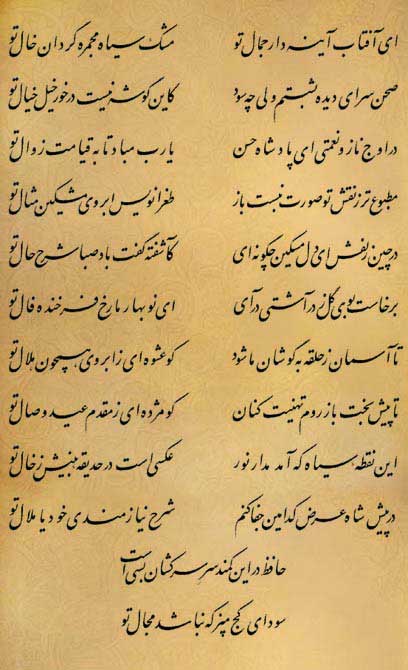 ای آفتاب آینه دار جمال تو مشک سیاه مجمره گردان خال تو
صحن سرای دیده بشستم ولی چه سود کاین گوشه نیست درخور خیل خیال تو
در اوج ناز و نعمتی ای پادشاه حسن یا رب مباد تا به قیامت زوال تو
مطبوع تر ز نقش تو صورت نبست باز طغرا نویس ابروی مشکین مثال تو
در چین زلفش ای دل مسکین چگونه ای کآشفته گفت باد صبا شرح حال تو
برخاست بوی گل ز در آشتی درآی ای نوبهار ما رخ فرخنده فال تو
تا آسمان ز حلقه به گوشان ما شود کو عشوه ای ز ابروی همچون هلال تو
تا پیش بخت باز روم تهنیت کنان کو مژده ای ز مقدم عید وصال تو
این نقطه سیاه که آمد مدار نور عکسی است در حدیقه بینش ز خال تو
در پیش شاه عرض کدامین جفا کنم شرح نیازمندی خود یا ملال تو
حافظ در این کمند سر سرکشان بسی است
سودای کج مپز که نباشد مجال تو